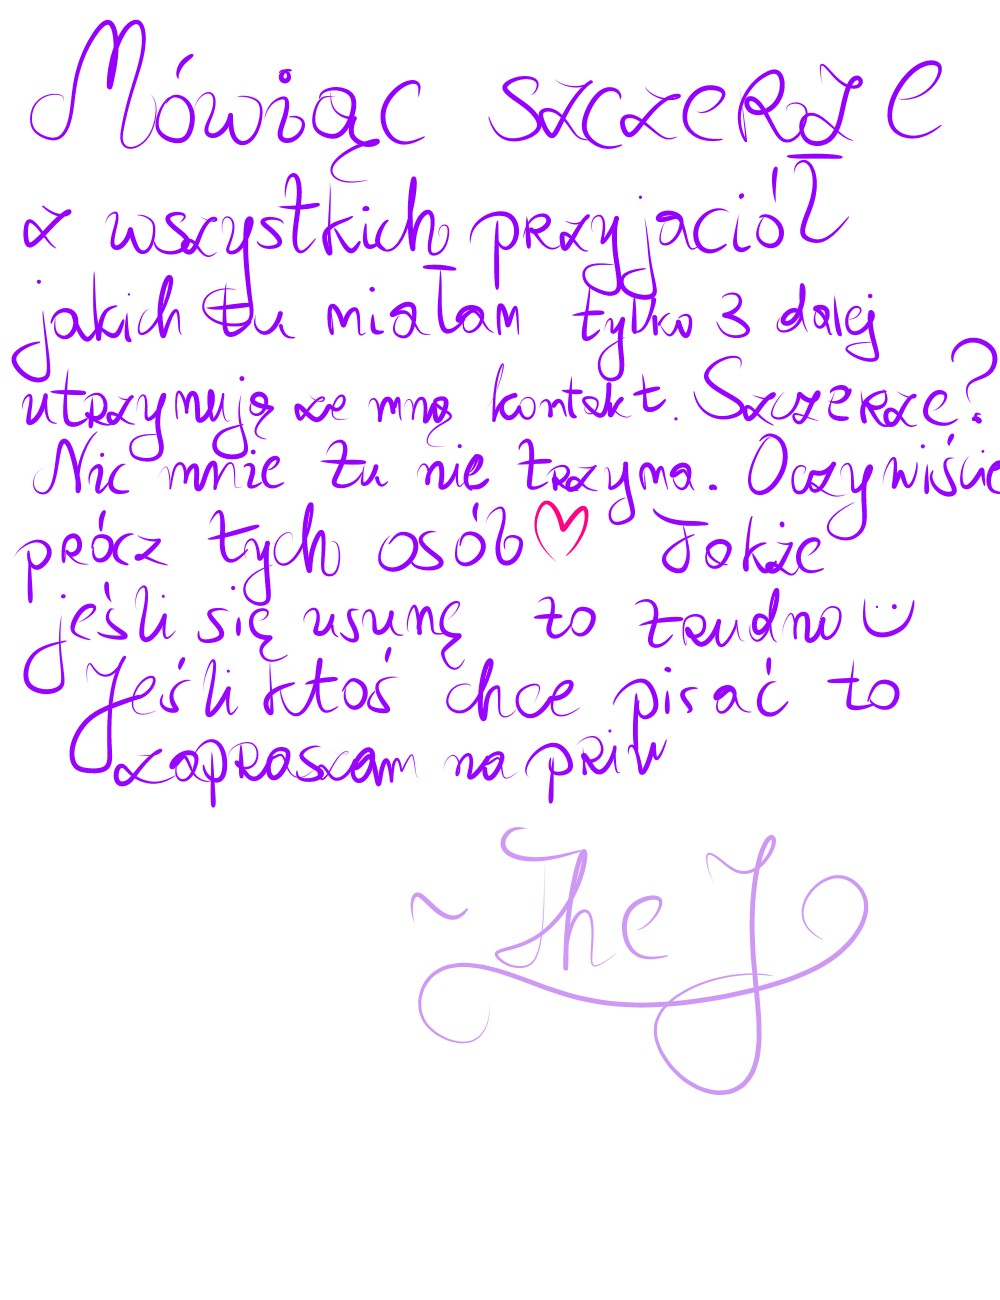 Mówiąc szczerze
z wszystkich przyjaciół
jakich tu miałam tylko 3 dalej
utrzynują ze mną kontakt. Szczerze?
Nic mnie tu nie trzyma. Oczywiście
prócz tych osób♡ Także
jeśli się usunę to trudno Ü
Jeśli ktoś chce pisać to
zapraszam na priv
~The J